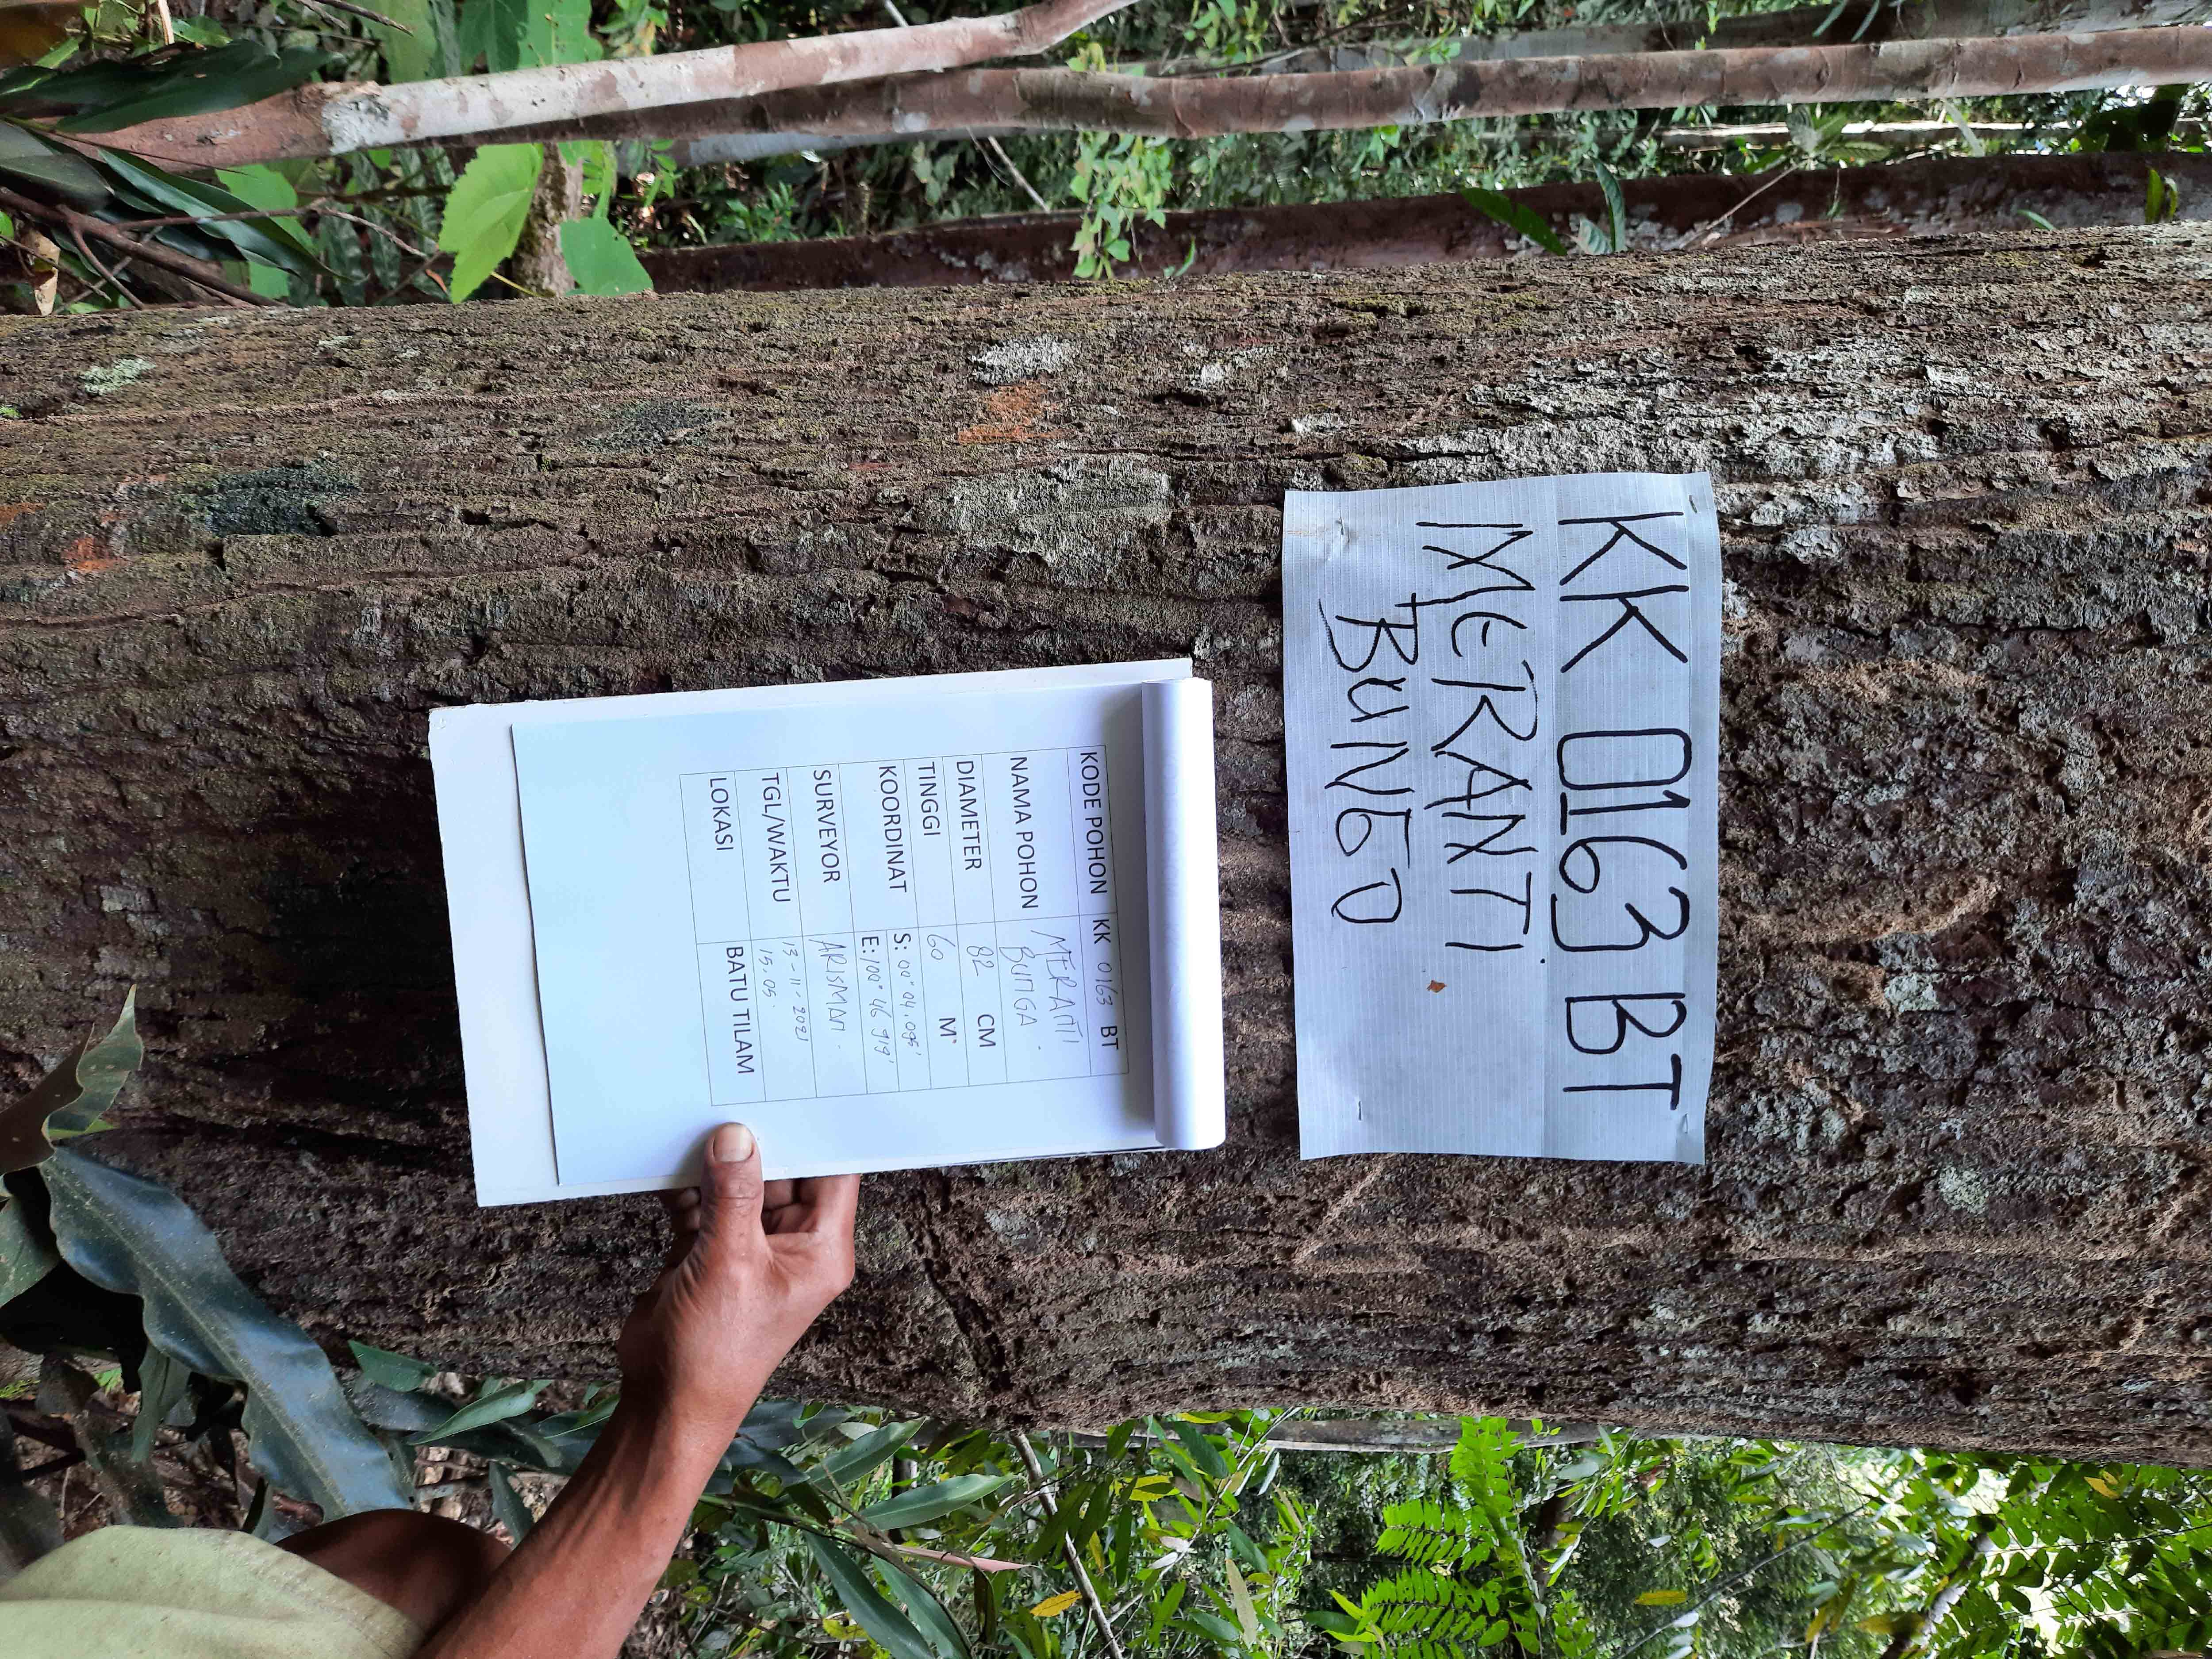 KK 0163 BT
MERANTI
BUNGO
KODE POHON KK 0163 BT
NAMA POHON MERANTI
BUNGA
DIAMETER 82 CM
TINGGI 60 M
KOORDINAT S: 00° 04.095'
E: 100° 46 919'
SURVEYOR ARISMAN.
TGL/WAKTU 13-11-2021
15.05
LOKASI BATU TILAM